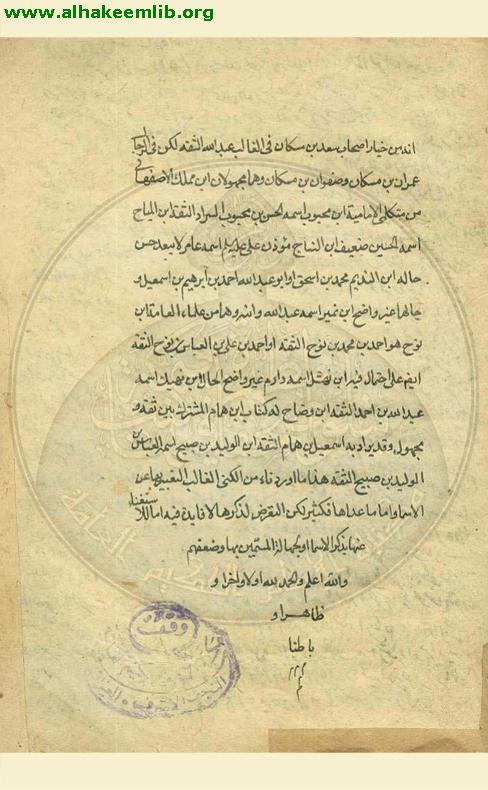 www.alhakeemlib.org
انه من خيار اصحاب سعد بن مسكان فى الغالب عبد الله الثقه لكن فى الرجا
عمران بن مسكان وصفوان بن مسكان وهما مجهولان ابن مملك الاصفهانى
من متكلمى الامامية ابن محبوب اسمه الحسن بن محبوب السراد الثقة ابن المياح
اسمه الحسين ضعيف ابن النباح مؤذن على عليه السلم اسمه عامر لا يبعد حسن
حاله ابن النديم محمد بن اسحق او ابو عبد الله احمد بن ابرهيم بن اسمعيل و
حالهما غير واضح ابن نمير اسمه عبد الله وهما من علماء العامة ابن
نوح هو احمد بن محمد بن نوح الثقه او احمد بن على بن العباس بن نوح الثقه
على احتمال فيه ابن نهشل اسمه دارم غير واضح الحال ابن نهيك اسمه
عبد الله بن احمد الثقه ابن وضاح له كتاب ابن همام المشترك بين ثقه و
مجهول وقد يراد به اسمعيل بن همام الثقه ابن الوليد بن صبيح اسمه العباس بن
الوليد بن صبيح الثقه هذا ما اوردناه من الكنى الغالب التعبير بها عن
الاسما واما ما عداها فكثير لكن التعرض لذكرها لا فايدة فيه اما للاستغناء
عنها بذكر الاسما او لجهالة المسمين بها وضعفهم
والله اعلم والحمد لله اولا واخرا و
ظاهرا و
باطنا
وقف